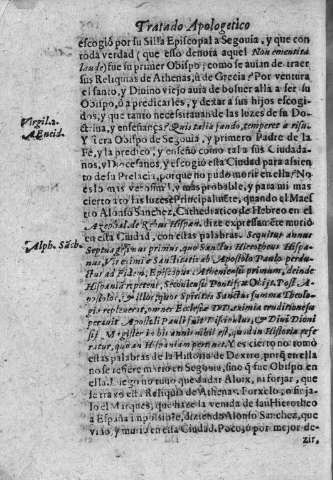 Tratado Apologetico
escogiò por su Silla Episcopal a Segouia, y que con
toda verdad ( que esso denota aquel Non ementita
laude) fue su primer Obispo, como se auian de traer
sus Reliquias de Athenas, ù de Grecia? Por ventura
el santo, y Diuino viejo auia de boluer allà a ser su
Obispo, ò a predicarles, y dexar a sus hijos escogi-
dos, y que tanto necessitauan de las luzes de su Do-
ctrina, y enseñança? Quis talia fando, temperet a risu.
Virgil. 2.
AEneid.
Y si era Obispo de Segouia, y primero Padre de la
Fè, y la predicò, y enseñò como tal a sus Ciudada-
nos, y Diocesanos, y escogiò esta Ciudad para assien-
to de su Prelacia, porque no pudo morir en ella? No
es lo mas verosimil, y mas probable, y para mi mas
cierto a todas luzes? Principalmente, quando el Maes-
tro Alonso Sanchez, Cathedratico de Hebreo en el
Arzobal de Rebus Hispan. dize expressamente muriò
en esta Ciudad, con estas palabras. Sequitur annus
Alph. Sãch.
Septuagesimus primus, quo Sanctus Hierotheus Hispa-
nus, Vir eximiæ Sanctitatis ab Apostolo Paulo perdu-
ctus ad Fidem, Episcopus Atheniensis primum, deinde
Hispaniã repetens, Secouiensis Pontifex Obijt. Post A-
postolos, & illos, quos Spiritus Sanctus summa Theolo-
gia repleuerat, omnes Ecclesiæ DD. eximia eruditione su-
perauit Apostoli Pauli fuit Discipulus, & Diui Dioni-
sij Magister in his annis nihil est, quod in Historia refe-
ratur, quoad Hispaniam pertinet. Y es cierto no tomò
estas palabras de la Historia de Dextro, porq̃ en ella
no se refiere muriò en Segouia, sino q̃ fue Obispo en
ella. Luego no tuuo que dudar Aloix, ni forjar, que
le traxo estas Reliquias de Athenas
lo el Marques, que haze la venida de san Hierotheo
a España impossible, diziendo Alonso Sanchez, que
viuiò, y muriò en esta Ciudad. Pocojò por mejor de-
zir,